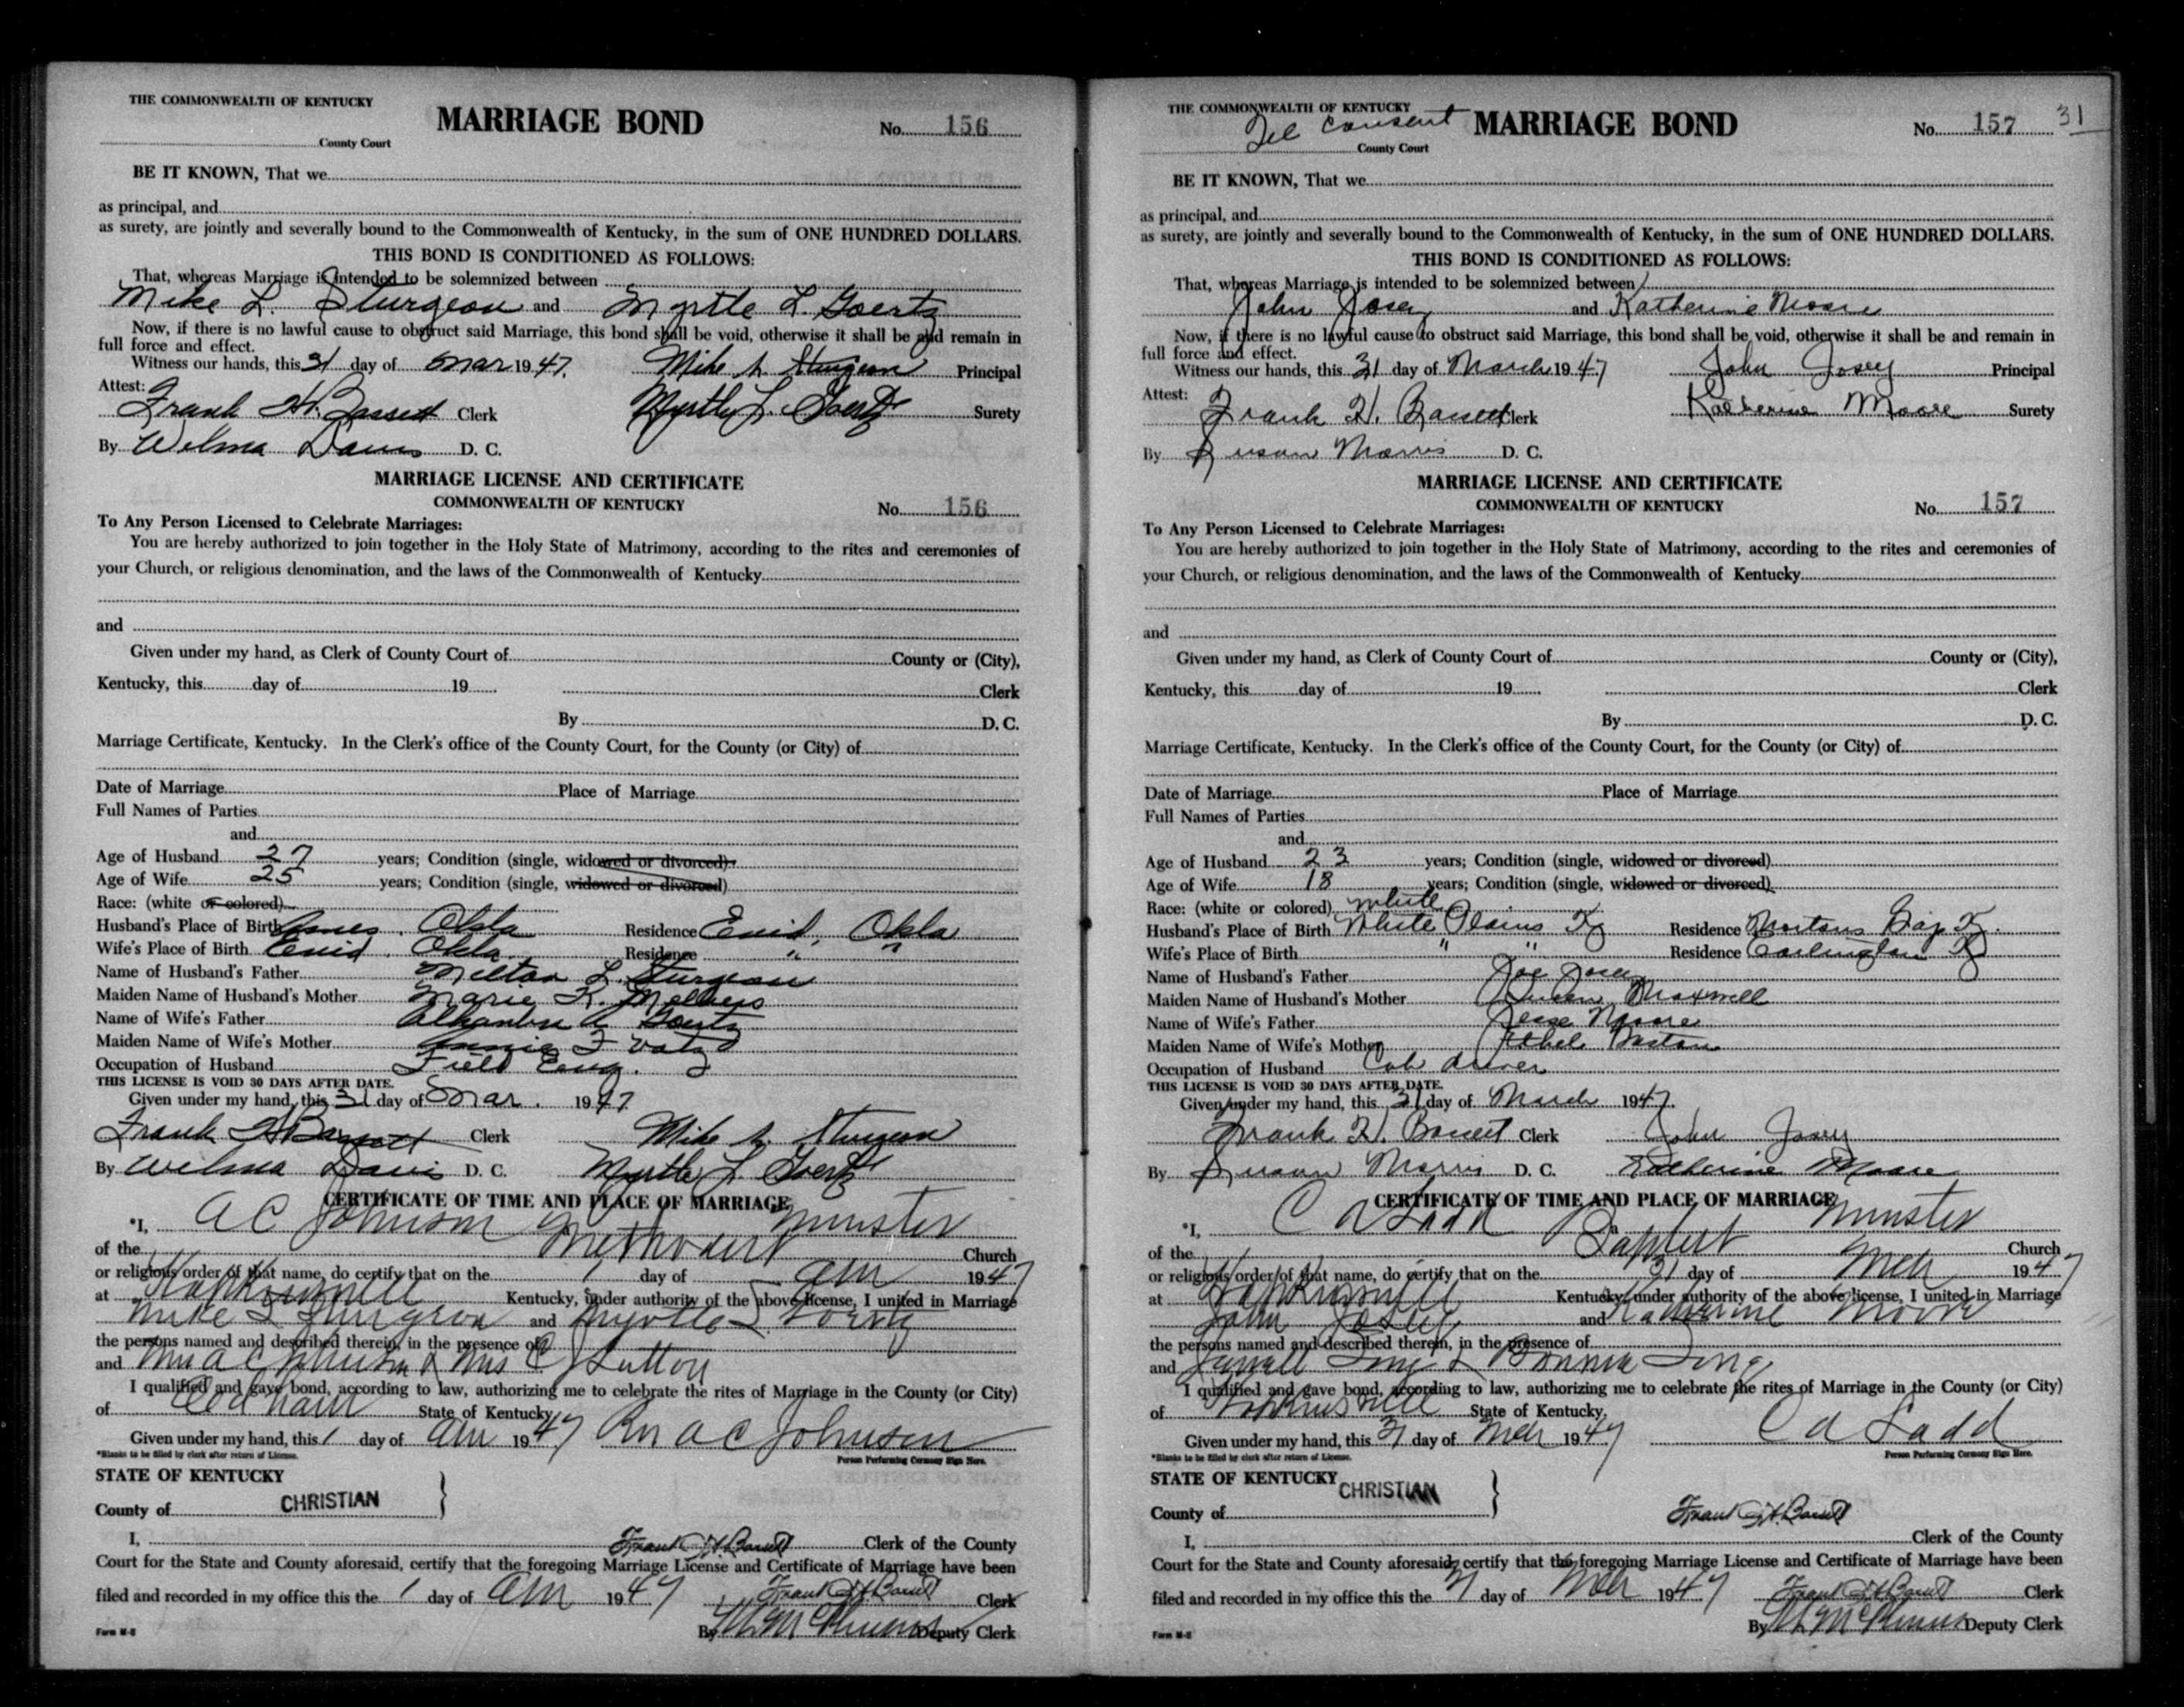 THE COMMONWEALTH OF KENTUCKY
MARRIAGE BOND
No. 156
County Court
BE IT KNOWN, That we
as principal, and
as surety, are jointly and severally bound to the Commonwealth of Kentucky, in the sum of ONE HUNDRED DOLLARS.
THIS BOND IS CONDITIONED AS FOLLOWS:
That, whereas Marriage is intended to be solemnized between
Mike L. Sturgeon and Myrtle L. Goertz
Now, if there is no lawful cause to obstruct said Marriage, this bond shall be void, otherwise it shall be and remain in
full force and effect.
Witness our hands, this 31 day of Mar 1947. Mike L. Sturgeon Principal
Attest:
Frank H. Bassett Clerk Myrtle L. Goertz Surety
By Wilma Davis D. C.
MARRIAGE LICENSE AND CERTIFICATE
COMMONWEALTH OF KENTUCKY No. 156
To Any Person Licensed to Celebrate Marriages:
You are hereby authorized to join together in the Holy State of Matrimony, according to the rites and ceremonies of
your Church, or religious denomination, and the laws of the Commonwealth of Kentucky
and
Given under my hand, as Clerk of County Court of County or (City),
Kentucky, this day of 19 Clerk
By D. C.
Marriage Certificate, Kentucky. In the Clerk's office of the County Court, for the County (or City) of
Date of Marriage Place of Marriage
Full Names of Parties
and
Age of Husband 27 years; Condition (single, widowed or divorced)
Age of Wife 25 years; Condition (single, widowed or divorced)
Race: (white or colored)
Husband's Place of Birth Ames, Okla Residence Enid, Okla
Wife's Place of Birth Enid, Okla. Residence " "
Name of Husband's Father Milton L. Sturgeon
Maiden Name of Husband's Mother Marie K.
Name of Wife's Father Goertz
Maiden Name of Wife's Mother F
Occupation of Husband Field Eng.
THIS LICENSE IS VOID 30 DAYS AFTER DATE.
Given under my hand, this 31 day of Mar. 1947
Frank H Bassett Clerk Mike L. Sturgeon
By Wilma Davis D. C. Myrtle L Goertz
CERTIFICATE OF TIME AND PLACE OF MARRIAGE
*I, A C Johnson a Minister
of the Methodist Church
or religious order of that name, do certify that on the 1 day of Apr 1947
at Hopkinsville Kentucky, under authority of the above license, I united in Marriage
Mike L Sturgeon and Myrtle L Goertz
the persons named and described therein, in the presence of
and Mrs A C Johnson & Mrs C J Sutton
I qualified and gave bond, according to law, authorizing me to celebrate the rites of Marriage in the County (or City)
of State of Kentucky
Given under my hand, this 1 day of Apr 1947 Rev A C Johnson
*Blanks to be filled by clerk after return of License. Person Performing Cermony Sign Here.
STATE OF KENTUCKY
County of CHRISTIAN
I, Frank H. Bassett Clerk of the County
Court for the State and County aforesaid, certify that the foregoing Marriage License and Certificate of Marriage have been
filed and recorded in my office this the 1 day of Apr 1947 Frank H. Bassett Clerk
By Deputy Clerk
Form M-8
THE COMMONWEALTH OF KENTUCKY
Tel Consent
MARRIAGE BOND
No. 157 31
County Court
BE IT KNOWN, That we
as principal, and
as surety, are jointly and severally bound to the Commonwealth of Kentucky, in the sum of ONE HUNDRED DOLLARS.
THIS BOND IS CONDITIONED AS FOLLOWS:
That, whereas Marriage is intended to be solemnized between
John Josey and Katherine Moore
Now, if there is no lawful cause to obstruct said Marriage, this bond shall be void, otherwise it shall be and remain in
full force and effect.
Witness our hands, this 31 day of March 1947 John Josey Principal
Attest:
Frank H. Bassett Clerk Katherine Moore Surety
By Susan Morris D. C.
MARRIAGE LICENSE AND CERTIFICATE
COMMONWEALTH OF KENTUCKY No. 157
To Any Person Licensed to Celebrate Marriages:
You are hereby authorized to join together in the Holy State of Matrimony, according to the rites and ceremonies of
your Church, or religious denomination, and the laws of the Commonwealth of Kentucky
and
Given under my hand, as Clerk of County Court of County or (City),
Kentucky, this day of 19 Clerk
By D. C.
Marriage Certificate, Kentucky. In the Clerk's office of the County Court, for the County (or City) of
Date of Marriage Place of Marriage
Full Names of Parties
and
Age of Husband 23 years; Condition (single, widowed or divorced)
Age of Wife 18 years; Condition (single, widowed or divorced)
Race: (white or colored) white
Husband's Place of Birth White Plains Ky Residence Mortons Gap Ky.
Wife's Place of Birth " " Residence Earlington Ky
Name of Husband's Father Joe Josey
Maiden Name of Husband's Mother Maxwell
Name of Wife's Father Jesse Moore
Maiden Name of Wife's Mother Ethel
Occupation of Husband Cab driver
THIS LICENSE IS VOID 30 DAYS AFTER DATE.
Given under my hand, this 31 day of March 1947.
Frank H. Bassett Clerk John Josey
By Susan Morris D. C. Katherine Moore
CERTIFICATE OF TIME AND PLACE OF MARRIAGE
*I, C A Ladd a Minister
of the Baptist Church
or religious order of that name, do certify that on the 31 day of Mch 1947
at Hopkinsville Kentucky, under authority of the above license, I united in Marriage
John Josey and Katherine Moore
the persons named and described therein, in the presence of
and
I qualified and gave bond, according to law, authorizing me to celebrate the rites of Marriage in the County (or City)
of Hopkinsville State of Kentucky,
Given under my hand, this 31 day of Mch 1947 C A Ladd
*Blanks to be filled by clerk after return of License. Person Performing Cermony Sign Here.
STATE OF KENTUCKY
County of CHRISTIAN
Frank H. Bassett
I, Clerk of the County
Court for the State and County aforesaid, certify that the foregoing Marriage License and Certificate of Marriage have been
filed and recorded in my office this the 31 day of Mch 1947 Frank H. Bassett Clerk
By Deputy Clerk
Form M-8